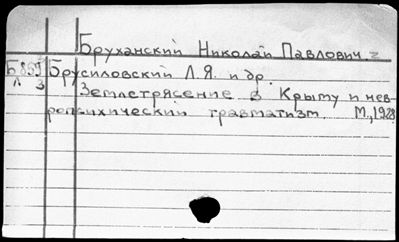 Бруханский Николай Павлович
Брусиловский Л.Я. и др.
Землетрясение в Крыму и нев-
ропсихический травматизм. М., 1928